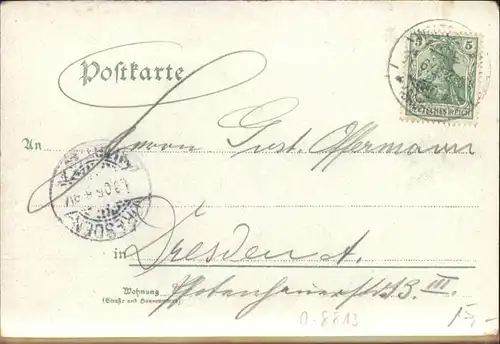 5 5
DEUTSCHES REICH
Postkarte
An Herrn Gust. Offermann
DRESDEN
.3.06.
in Dresden A.
Wohnung
(Straße und Hausnummer)
13. III.
0-8813
15,-